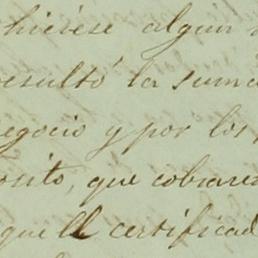 hiciese algun
resultó la suma
negocio y por los
osito, que cobrare
quell certificad